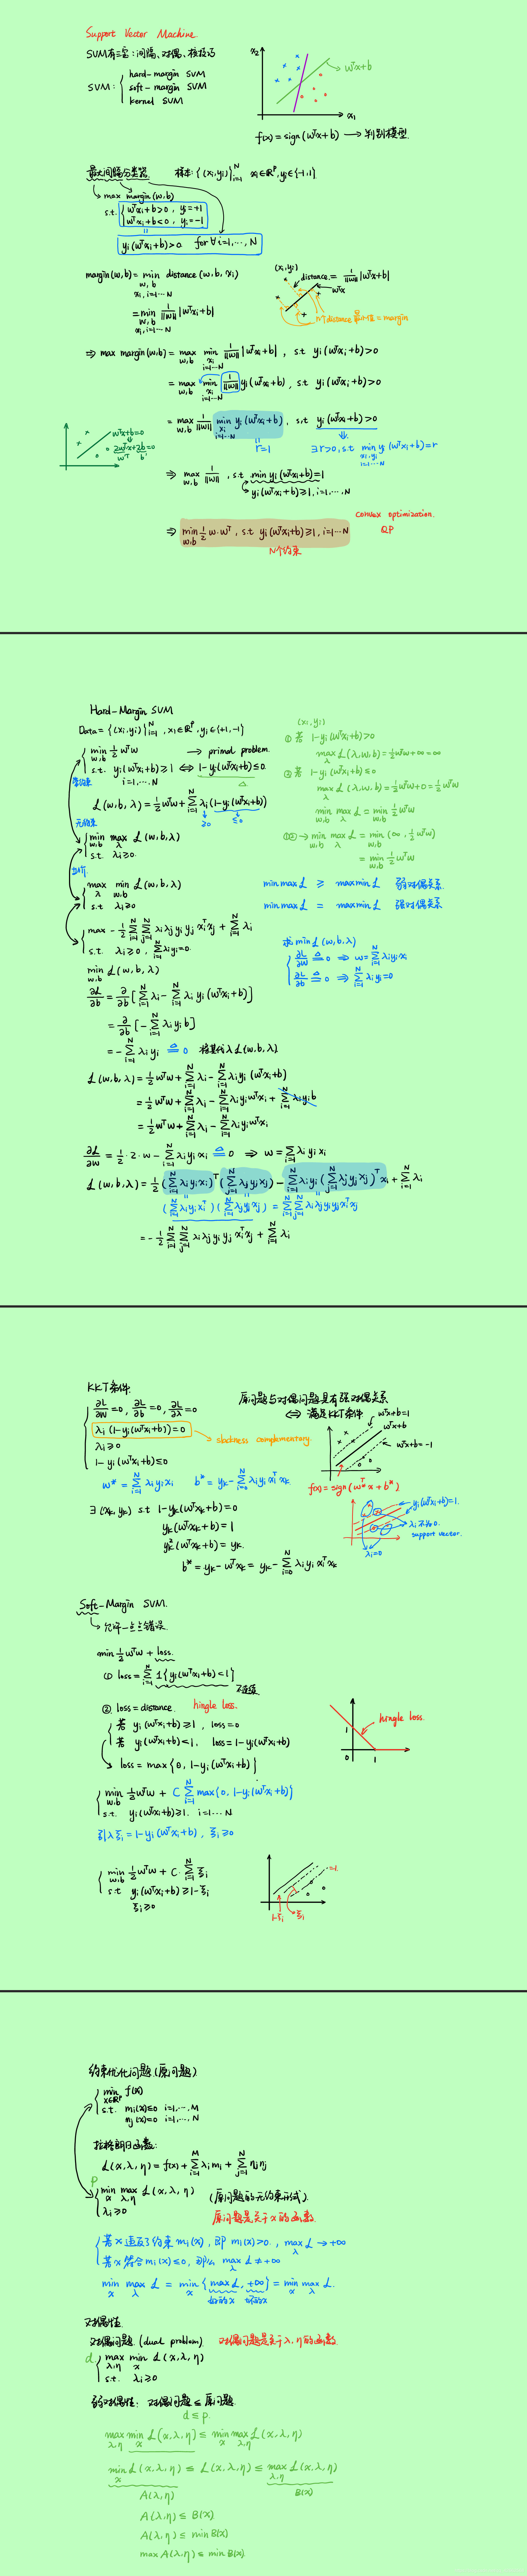 Support Vector Machine.
SVM有三宝：间隔、对偶、核技巧
SVM: { hard-margin SVM
soft-margin SVM
kernel SVM
x₂
wᵀx+b
x₁
f(x)=sign(wᵀx+b) → 判别模型.
最大间隔分类器. 样本: {(xᵢ,yᵢ)}ᵢ₌₁ᴺ xᵢ∈ℝᵖ, yᵢ∈{-1,1}.
max margin(w,b)
s.t. { wᵀxᵢ+b>0, yᵢ=+1
wᵀxᵢ+b<0, yᵢ=-1
yᵢ(wᵀxᵢ+b)>0. for ∀i=1,…,N
margin(w,b)= min distance(w,b,xᵢ)
w,b
xᵢ,i=1…N
= min 1/||w|| |wᵀxᵢ+b|
w,b
xᵢ,i=1…N
(xᵢ,yᵢ)
distance = 1/||w|| |wᵀxᵢ+b|
wᵀx
N个distance 最小值 = margin
⇒ max margin(w,b) = max min 1/||w|| |wᵀxᵢ+b|, s.t yᵢ(wᵀxᵢ+b)>0
w,b xᵢ i=1…N
= max min 1/||w|| yᵢ(wᵀxᵢ+b), s.t yᵢ(wᵀxᵢ+b)>0
w,b xᵢ i=1…N
= max 1/||w|| min yᵢ(wᵀxᵢ+b), s.t yᵢ(wᵀxᵢ+b)>0
w,b xᵢ i=1…N
r=1 ∃r>0, s.t min yᵢ(wᵀxᵢ+b)=r
xᵢ,yᵢ i=1…N
wᵀx+b=0
2wᵀx+2b=0
wᵀ b'
⇒ max 1/||w||, s.t min yᵢ(wᵀxᵢ+b)=1
w,b
yᵢ(wᵀxᵢ+b)≥1, i=1,…,N
convex optimization.
QP
⇒ min ½ w·wᵀ, s.t yᵢ(wᵀxᵢ+b)≥1, i=1…N
w,b
N个约束
Hard-Margin SVM
Data={(xᵢ,yᵢ)}ᵢ₌₁ᴺ, xᵢ∈ℝᵖ, yᵢ∈{+1,-1}
{ min ½wᵀw → primal problem.
w,b
s.t. yᵢ(wᵀxᵢ+b)≥1 ⇔ 1-yᵢ(wᵀxᵢ+b)≤0.
i=1,…,N
L(w,b,λ)=½wᵀw+∑ᵢ₌₁ᴺ λᵢ(1-yᵢ(wᵀxᵢ+b))
≥0 ≤0
无约束
{ min max L(w,b,λ)
w,b λ
s.t. λᵢ≥0.
{ max min L(w,b,λ)
λ w,b
s.t λᵢ≥0
{ max -½∑ᵢ₌₁ᴺ∑ⱼ₌₁ᴺ λᵢλⱼyᵢyⱼxᵢᵀxⱼ+∑ᵢ₌₁ᴺλᵢ
s.t. λᵢ≥0, ∑ᵢ₌₁ᴺλᵢyᵢ=0.
(xᵢ,yᵢ)
① 若 1-yᵢ(wᵀxᵢ+b)>0
max L(λ,w,b)=½wᵀw+∞=∞
λ
② 若 1-yᵢ(wᵀxᵢ+b)≤0
max L(λ,w,b)=½wᵀw+0=½wᵀw
λ
min max L = min ½wᵀw
w,b λ w,b
①② → min max L = min(∞, ½wᵀw)
w,b λ w,b
= min ½wᵀw
w,b
min max L ≥ max min L 弱对偶关系.
min max L = max min L 强对偶关系
求 min L(w,b,λ)
{ ∂L/∂w ≜ 0 ⇒ w=∑ᵢ₌₁ᴺλᵢyᵢxᵢ
∂L/∂b ≜ 0 ⇒ ∑ᵢ₌₁ᴺλᵢyᵢ=0
min L(w,b,λ)
w,b
∂L/∂b = ∂/∂b[∑ᵢ₌₁ᴺλᵢ-∑ᵢ₌₁ᴺλᵢyᵢ(wᵀxᵢ+b)]
= ∂/∂b[-∑ᵢ₌₁ᴺλᵢyᵢb]
= -∑ᵢ₌₁ᴺλᵢyᵢ ≜ 0 将其代入L(w,b,λ).
L(w,b,λ)=½wᵀw+∑ᵢ₌₁ᴺλᵢ-∑ᵢ₌₁ᴺλᵢyᵢ(wᵀxᵢ+b)
=½wᵀw+∑ᵢ₌₁ᴺλᵢ-∑ᵢ₌₁ᴺλᵢyᵢwᵀxᵢ+∑ᵢ₌₁ᴺλᵢyᵢb
=½wᵀw+∑ᵢ₌₁ᴺλᵢ-∑ᵢ₌₁ᴺλᵢyᵢwᵀxᵢ
∂L/∂w = ½·2·w-∑ᵢ₌₁ᴺλᵢyᵢxᵢ ≜ 0 ⇒ w=∑λᵢyᵢxᵢ
L(w,b,λ)=½(∑ᵢ₌₁ᴺλᵢyᵢxᵢ)ᵀ(∑ⱼ₌₁ᴺλⱼyⱼxⱼ)-∑ᵢ₌₁ᴺλᵢyᵢ(∑ⱼ₌₁ᴺλⱼyⱼxⱼ)ᵀxᵢ+∑ᵢ₌₁ᴺλᵢ
(∑ᵢ₌₁ᴺλᵢyᵢxᵢᵀ)(∑ⱼ₌₁ᴺλⱼyⱼxⱼ)=∑ᵢ₌₁ᴺ∑ⱼ₌₁ᴺλᵢλⱼyᵢyⱼxᵢᵀxⱼ
=-½∑ᵢ₌₁ᴺ∑ⱼ₌₁ᴺλᵢλⱼyᵢyⱼxᵢᵀxⱼ+∑ᵢ₌₁ᴺλᵢ
KKT条件.
{ ∂L/∂w=0, ∂L/∂b=0, ∂L/∂λ=0
λᵢ(1-yᵢ(wᵀxᵢ+b))=0
slackness complementary.
λᵢ≥0
1-yᵢ(wᵀxᵢ+b)≤0
原问题与对偶问题具有强对偶关系
⇔ 满足KKT条件
wᵀx+b=1
wᵀx+b
wᵀx+b=-1
w*=∑ᵢ₌₁ᴺλᵢyᵢxᵢ b*=yₖ-∑ᵢ₌₀ᴺλᵢyᵢxᵢᵀxₖ
f(x)=sign(w*ᵀx+b*)
∃(xₖ,yₖ) s.t 1-yₖ(wᵀxₖ+b)=0
yₖ(wᵀxₖ+b)=1
yₖ²(wᵀxₖ+b)=yₖ.
b*=yₖ-wᵀxₖ=yₖ-∑ᵢ₌₀ᴺλᵢyᵢxᵢᵀxₖ
yᵢ(wᵀxᵢ+b)=1.
λᵢ不为0.
support vector.
λᵢ=0
Soft-Margin SVM.
允许一点点错误.
min ½wᵀw + loss.
① loss=∑ᵢ₌₁ᴺ 1{yᵢ(wᵀxᵢ+b)<1}
不连续.
② loss=distance. hingle loss.
{ 若 yᵢ(wᵀxᵢ+b)≥1, loss=0
若 yᵢ(wᵀxᵢ+b)<1, loss=1-yᵢ(wᵀxᵢ+b)
loss=max{0,1-yᵢ(wᵀxᵢ+b)}
hingle loss.
1
0 1
{ min ½wᵀw + C∑ᵢ₌₁ᴺmax{0,1-yᵢ(wᵀxᵢ+b)}
w,b
s.t. yᵢ(wᵀxᵢ+b)≥1. i=1…N
引入ξᵢ=1-yᵢ(wᵀxᵢ+b), ξᵢ≥0
{ min ½wᵀw + C·∑ᵢ₌₁ᴺξᵢ
w,b
s.t yᵢ(wᵀxᵢ+b)≥1-ξᵢ
ξᵢ≥0
1-ξᵢ ξᵢ
约束优化问题.(原问题)
{ min f(x)
x∈ℝᵖ
s.t. mᵢ(x)≤0 i=1,…,M
nⱼ(x)=0 i=1,…,N
拉格朗日函数:
L(x,λ,η)=f(x)+∑ᵢ₌₁ᴹλᵢmᵢ+∑ⱼ₌₁ᴺηⱼnⱼ
p
{ min max L(x,λ,η) (原问题的无约束形式).
x λ,η
λᵢ≥0
原问题是关于x的函数.
{ 若x违反了约束mᵢ(x), 即mᵢ(x)>0, max L→+∞
λ
若x符合mᵢ(x)≤0, 那么 max L≠+∞
λ
min max L = min{max L, +∞}=min max L.
x λ x λ x λ
好的x 坏的x
对偶性.
对偶问题.(dual problem). 对偶问题是关于λ,η的函数.
d
{ max min L(x,λ,η)
λ,η x
s.t. λᵢ≥0
弱对偶性: 对偶问题≤原问题.
d≤p.
max min L(x,λ,η)≤min max L(x,λ,η)
λ,η x x λ,η
min L(x,λ,η)≤L(x,λ,η)≤max L(x,λ,η)
x λ,η
A(λ,η) B(x)
A(λ,η)≤B(x)
A(λ,η)≤minB(x)
maxA(λ,η)≤minB(x).